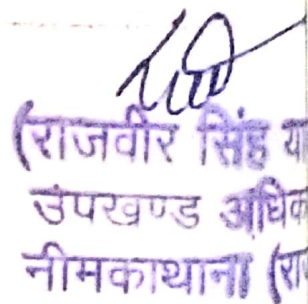 (राजवीर सिंह य
उपखण्ड अधिक
नीमकाथाना (रा